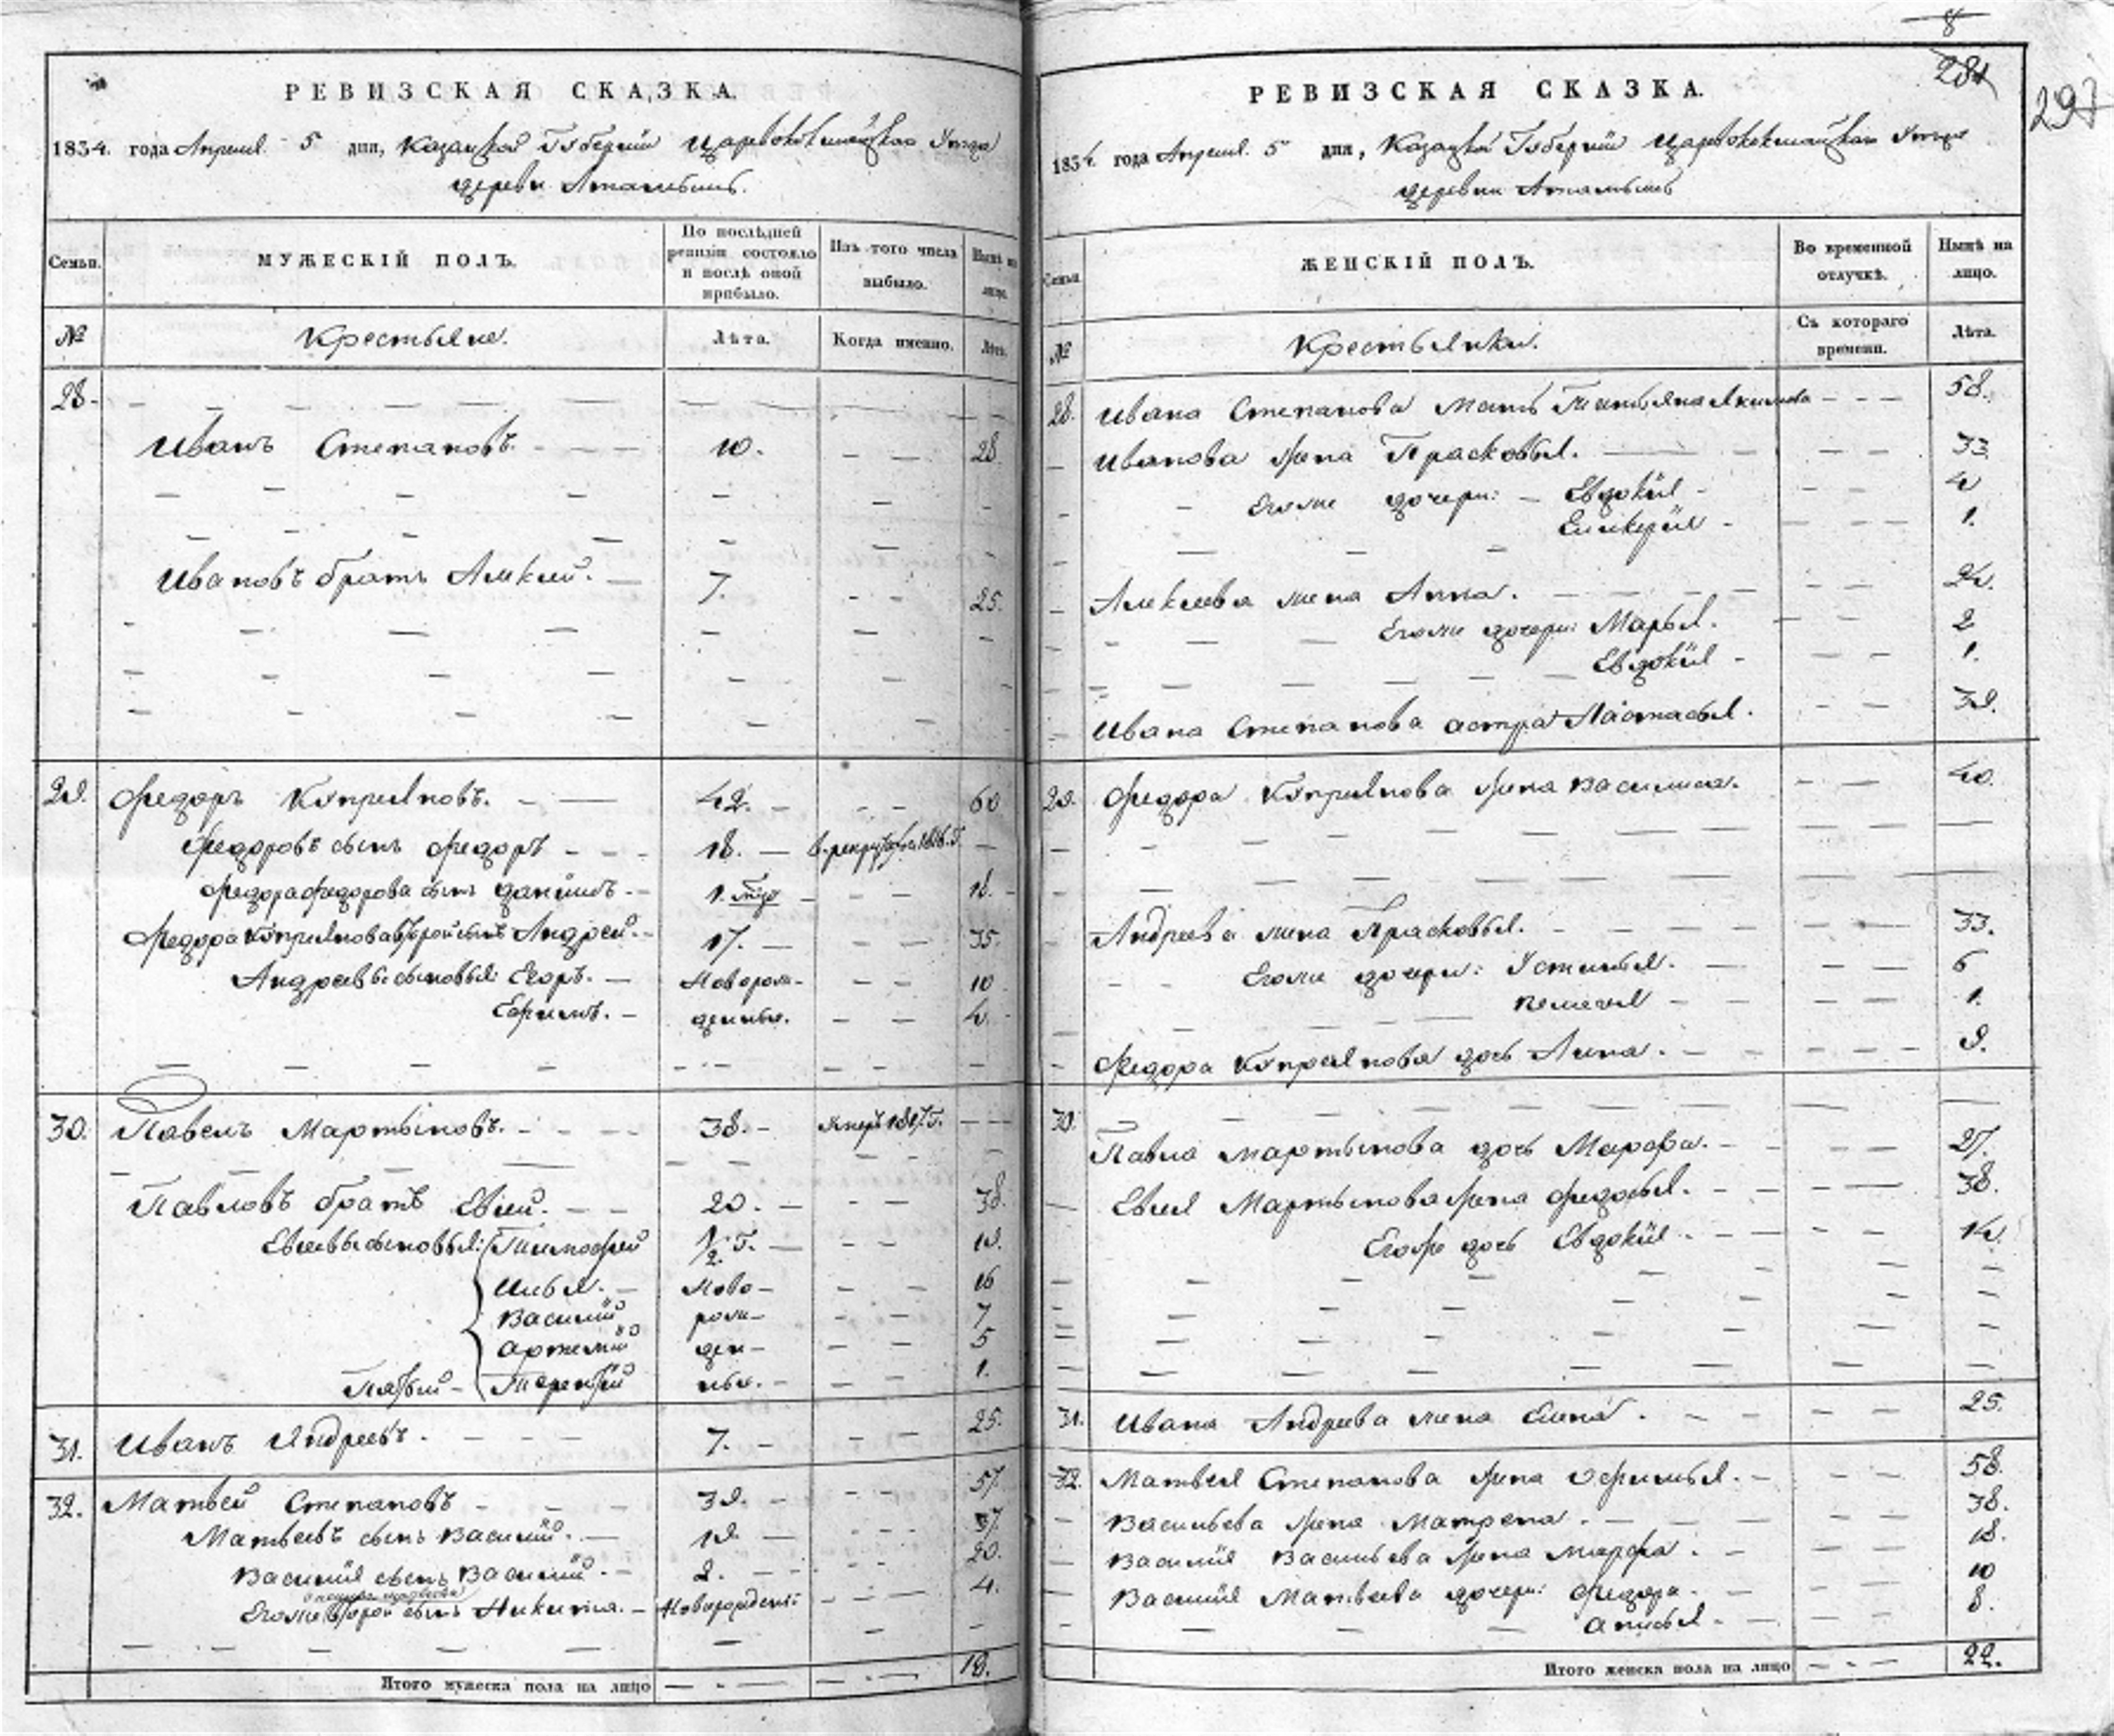 РЕВИЗСКАЯ СКАЗКА.
1834. года Апреля 5 дня, Казанской Губернии Царевококшайскаго Уезда
деревни
Семьи. МУЖЕСКІЙ ПОЛЪ. По послѣдней ревизіи состояло и послѣ оной прибыло. Изъ того числа выбыло. Нынѣ на лицо.
№ Крестьяне. Лѣта. Когда именно. Лѣта.
28.
Иванъ Степановъ. 10. 28.
Ивановъ братъ Алексей. 7. 25.
29. Федоръ Куприяновъ. 42. 60
Федоровъ сынъ Федоръ 18. в рекруты 1816. г.
Федора Федорова сынъ Данило 1. год 18.
Федора Куприянова второй сынъ Андрей. 17. 35.
Андреевы сыновья: Егоръ. Новорож- 10
Ефимъ. денные. 4.
30. Павелъ Мартыновъ. 38. Умеръ г.
Павловъ братъ Евсей. 20. 38.
Евсеевы сыновья: Тимофей 1/2 г. 19.
Илья. Ново- 16
Василий рож- 7
Артемий ден- 5
Пятый Терентий ные. 1.
31. Иванъ Андреевъ. 7. 25.
32. Матвей Степановъ 39. 57.
Матвеевъ сынъ Василий. 19. 37.
Василия сынъ Василий. 2. 20.
Егоже второй сынъ Никита. Новорожденный 4.
Итого мужеска пола на лицо 18.
8
281
297
РЕВИЗСКАЯ СКАЗКА.
1834. года Апреля. 5 дня, Казанской Губернии Царевококшайскаго Уезда
деревни
Семьи ЖЕНСКІЙ ПОЛЪ. Во временной отлучкѣ. Нынѣ на лицо.
№ Крестьянки. Съ котораго времени. Лѣта.
28. Ивана Степанова мать Татьяна Якимова 58.
Иванова жена Прасковья. 33.
Егоже дочери: Евдокия 4
1.
Алексеева жена Анна. 24.
Егоже дочери: Марья. 2
Евдокия 1.
Ивана Степанова сестра Настасья. 39.
29. Федора Куприянова жена Василиса. 40.
Андреева жена Прасковья. 33.
Егоже дочери: Устинья. 6
Пелагея 1.
Федора Куприянова дочь Анна. 9.
30. Павла Мартынова дочь Марфа. 27.
Евсея Мартынова жена Федосья. 38.
Егоже дочь Евдокия 14.
31. Ивана Андреева жена Елена. 25.
32. Матвея Степанова жена Офимья. 58.
Васильева жена Матрена. 38.
Василия Васильева жена Марфа. 18.
Василия Матвеева дочери: Федора 10
Анисья 8.
Итого женска пола на лицо 22.